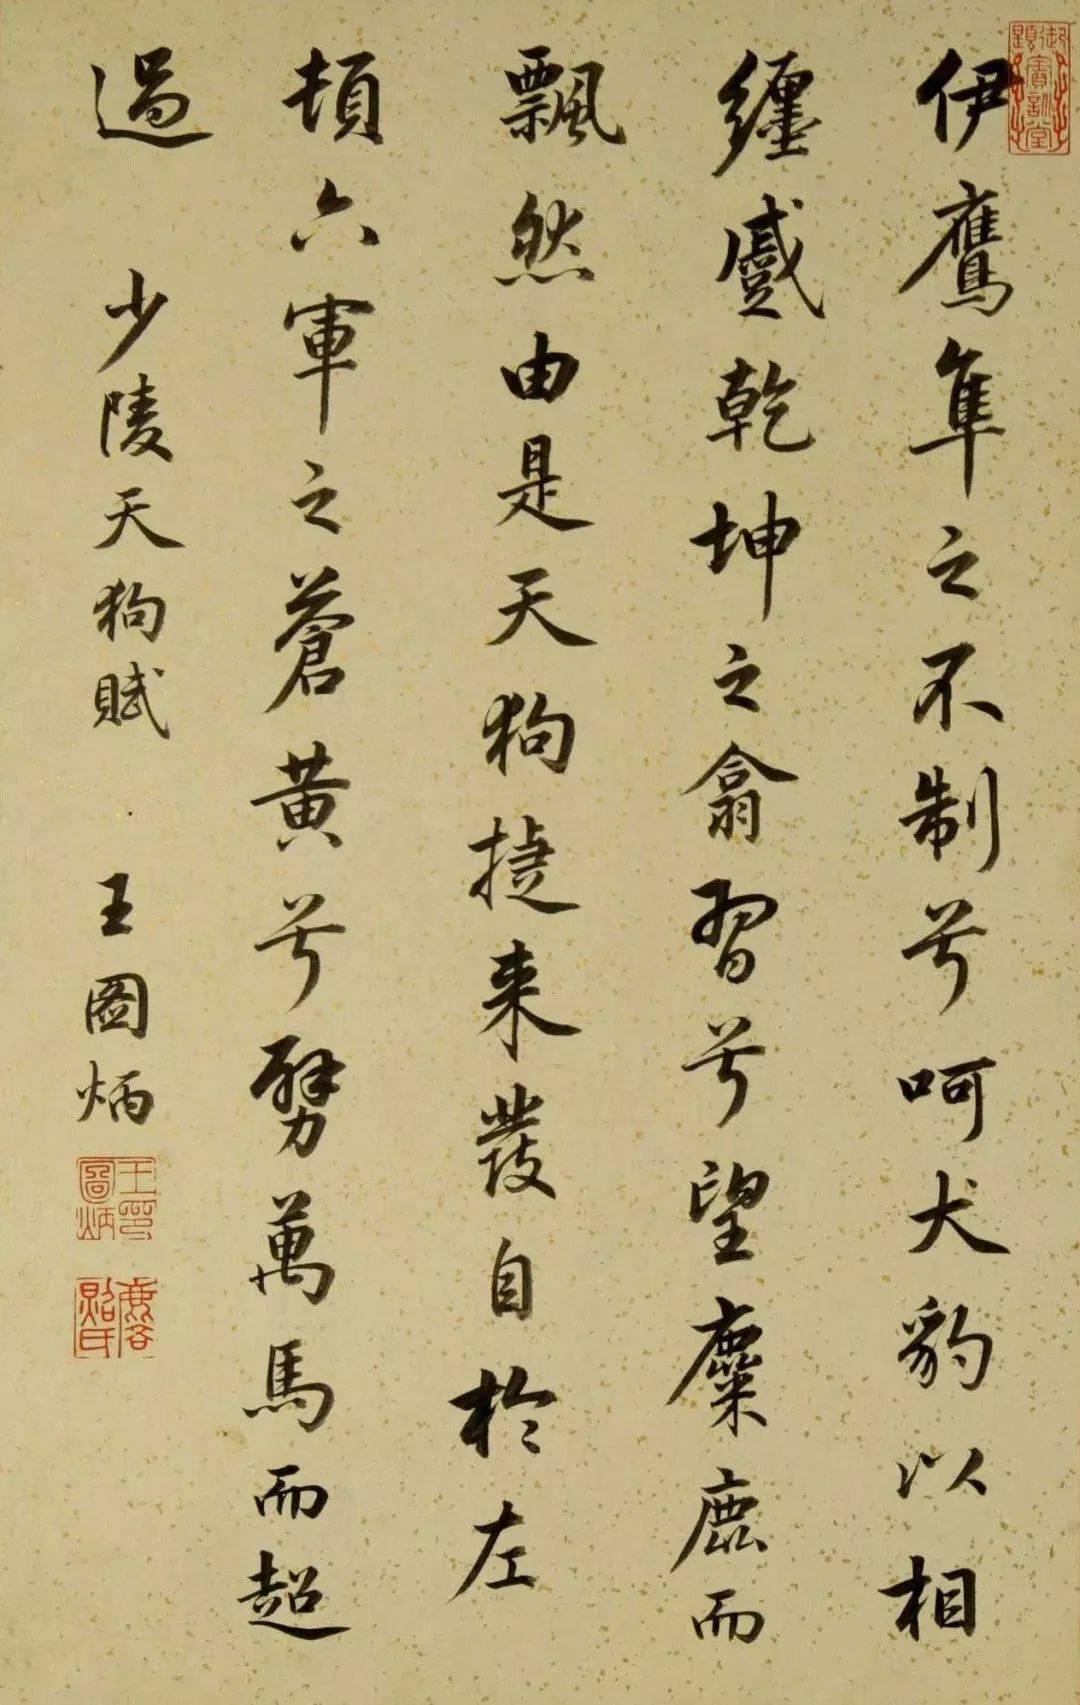 伊鷹隼之不制兮呵犬豹以相
纏蹙乾坤之翕習兮望麋鹿而
飄然由是天狗捷來發自於左
頓六軍之蒼黃兮劈萬馬而超
過 少陵天狗賦 王圖炳
王圖炳印